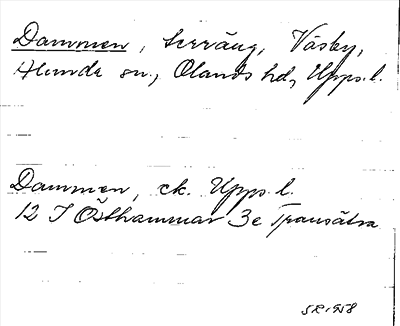 Dammen, terräng, Väsby,
Alunda sn., Olands hd, Upps. l.
Dammen, ek. Upps. l.
12 I Östhammar 3e Transätra
SR-958